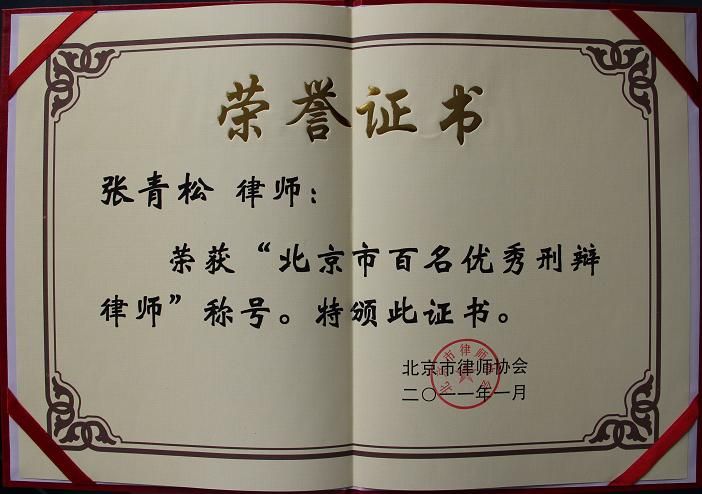 荣誉证书
张青松 律师：
荣获“北京市百名优秀刑辩
律师”称号。特颁此证书。
北京市律师协会
二〇一一年一月